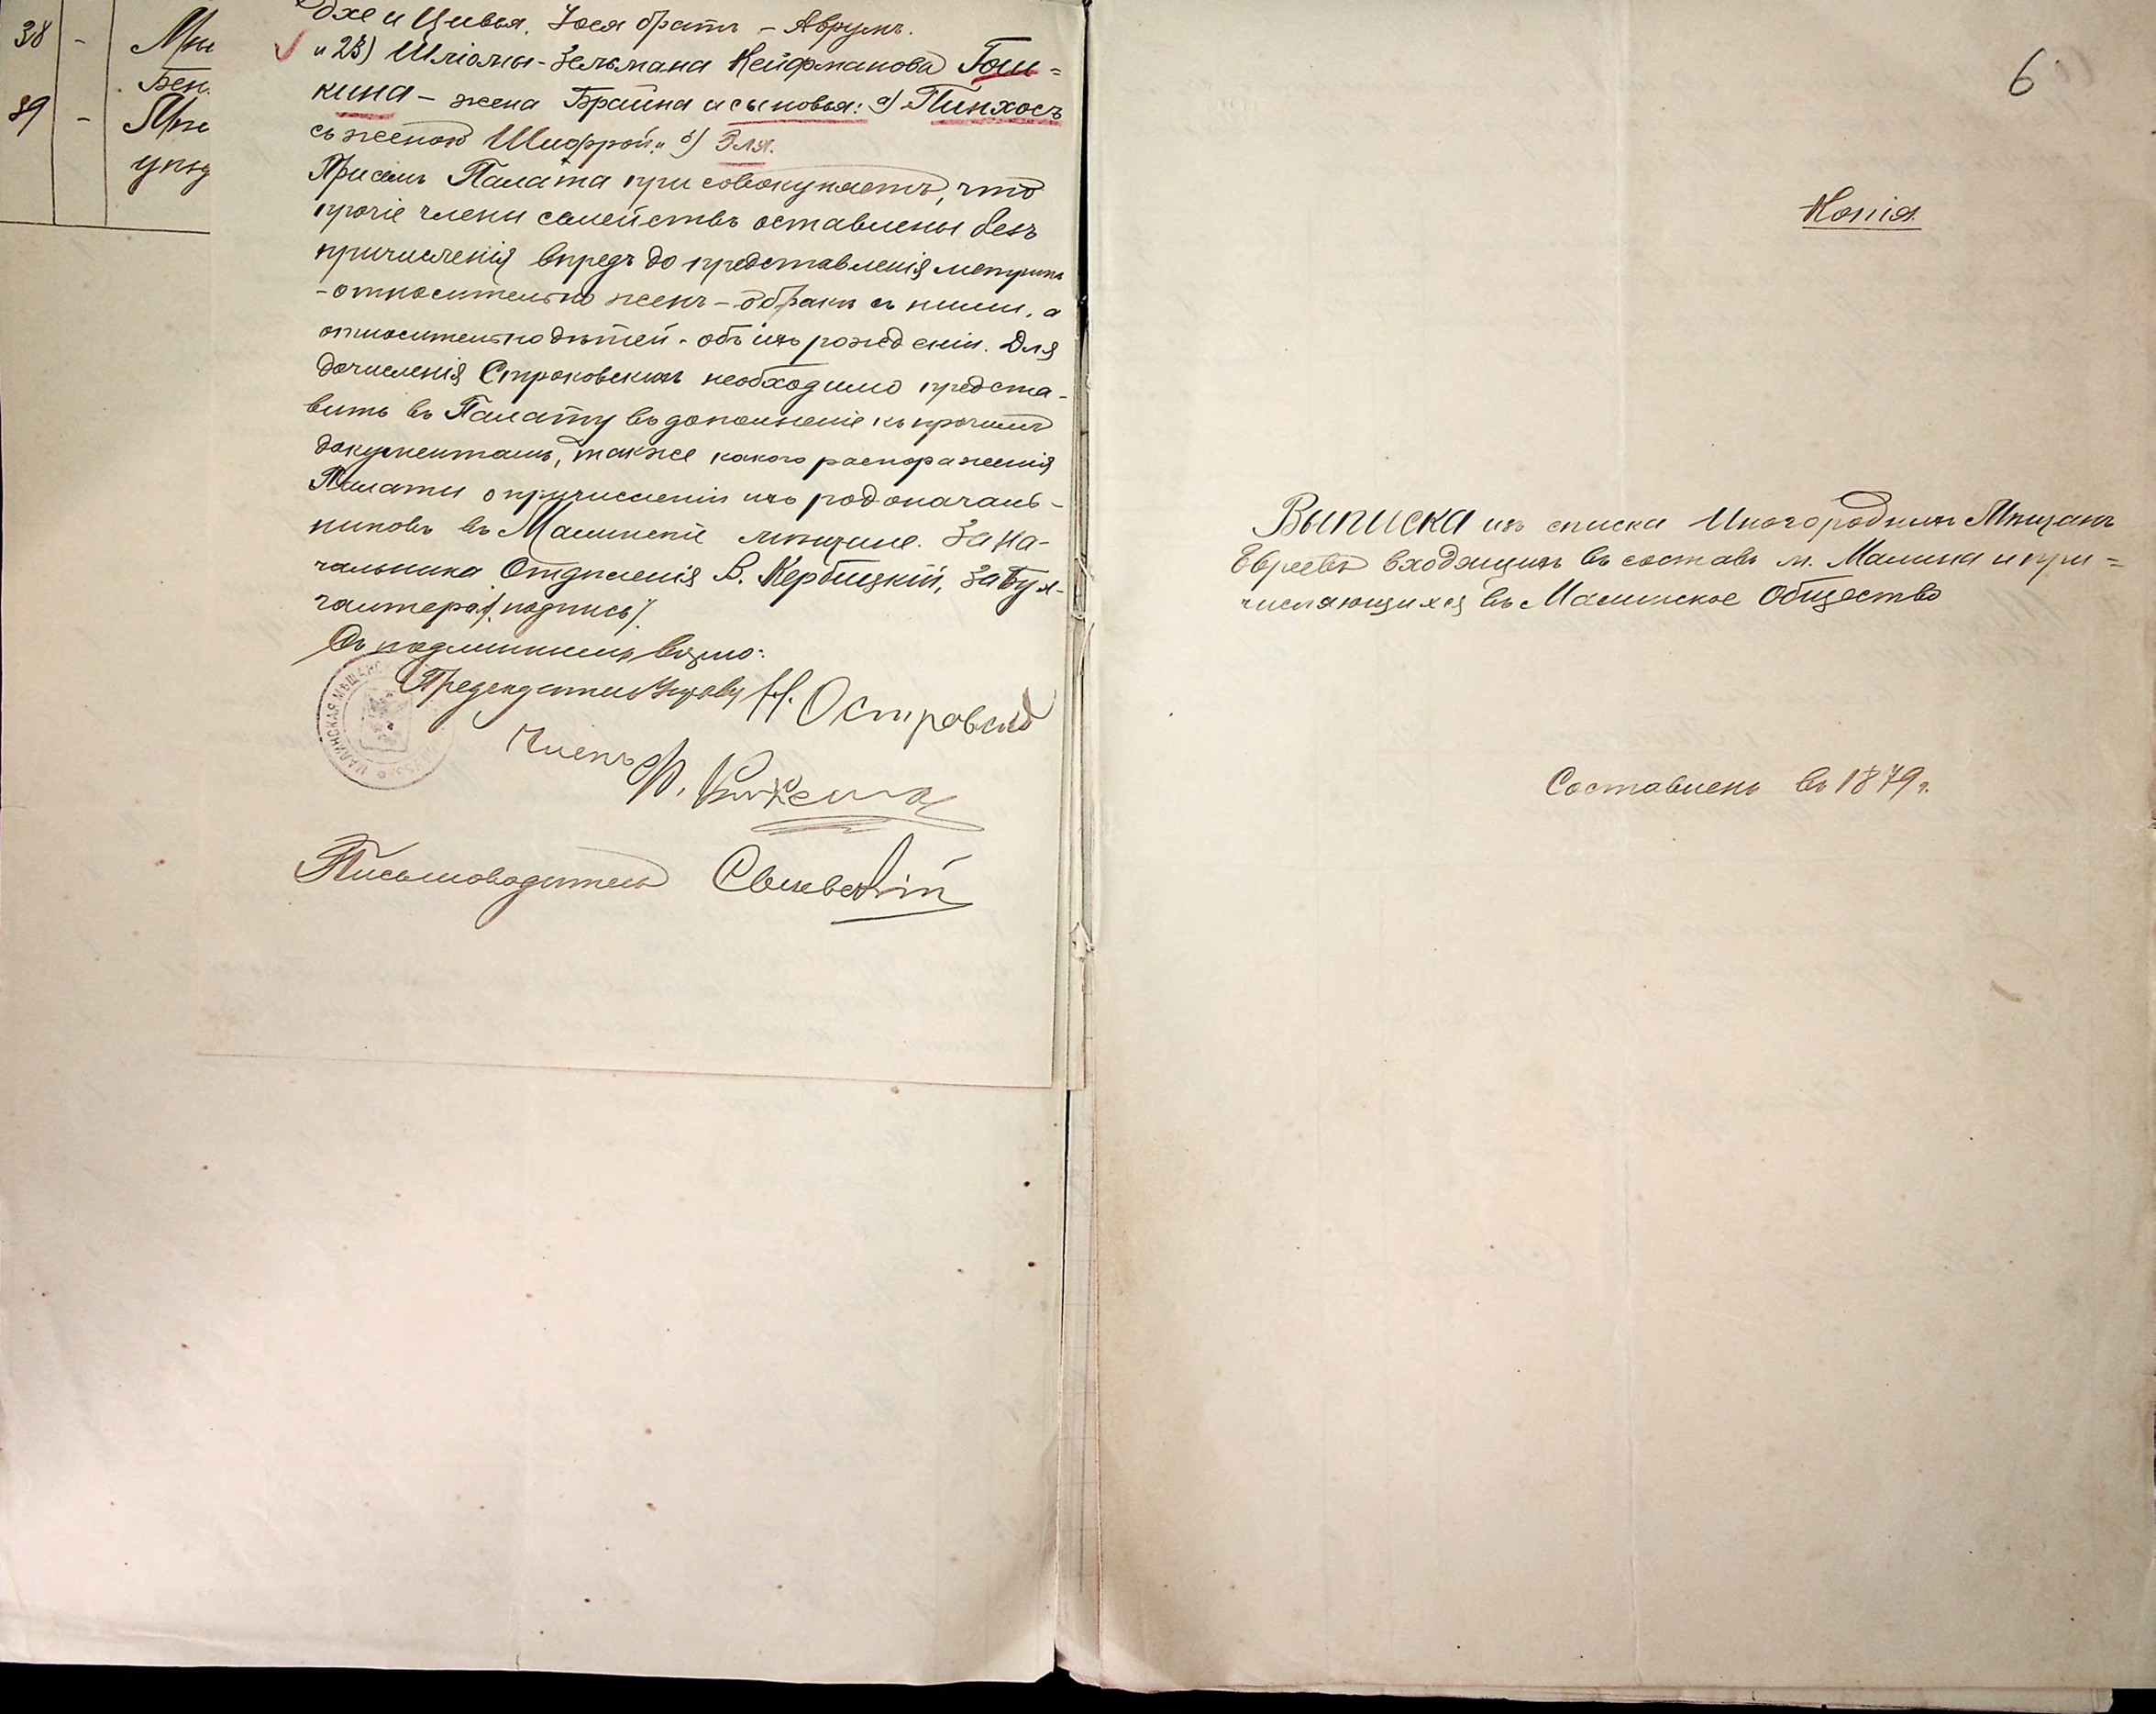 38 - Мы
Бен.
39 - Мы
упр
и Цивья. Іося братъ - Аврумъ.
и 23) Шліомы-Зельмана Кейфманова Гош=
кина - жена Брайна и сыновья: а) Пинхосъ
съ женою Шифрой и б) Эля.
При семъ Палата присовокупляетъ, что
прочіе члены семействъ оставлены безъ
причисленія впредь до представленія метрикъ
- относительно женъ - о бракѣ съ ними, а
относительно дѣтей - объ ихъ рожденіи. Для
дочисленія Строковскихъ необходимо предста-
вить въ Палату въ дополненіе къ прочимъ
документамъ, также распоряженія
Палаты о причисленіи ихъ родоначаль-
никовъ въ Малинскіе мѣщане. За На-
чальника Отдѣленія В. Кербицкій, за Бух-
галтера /подпись/.
Съ подлиннымъ вѣрно:
Предсѣдатель Управы Н. Островскій
Членъ
Письмоводитель
МАЛИНСКАЯ МѢЩАНС
6
Копія.
Выписка изъ списка Иногороднихъ Мѣщанъ
Евреевъ входящихъ въ составъ м. Малина и при=
числяющихся въ Малинское Общество
Составленъ въ 1879 г.